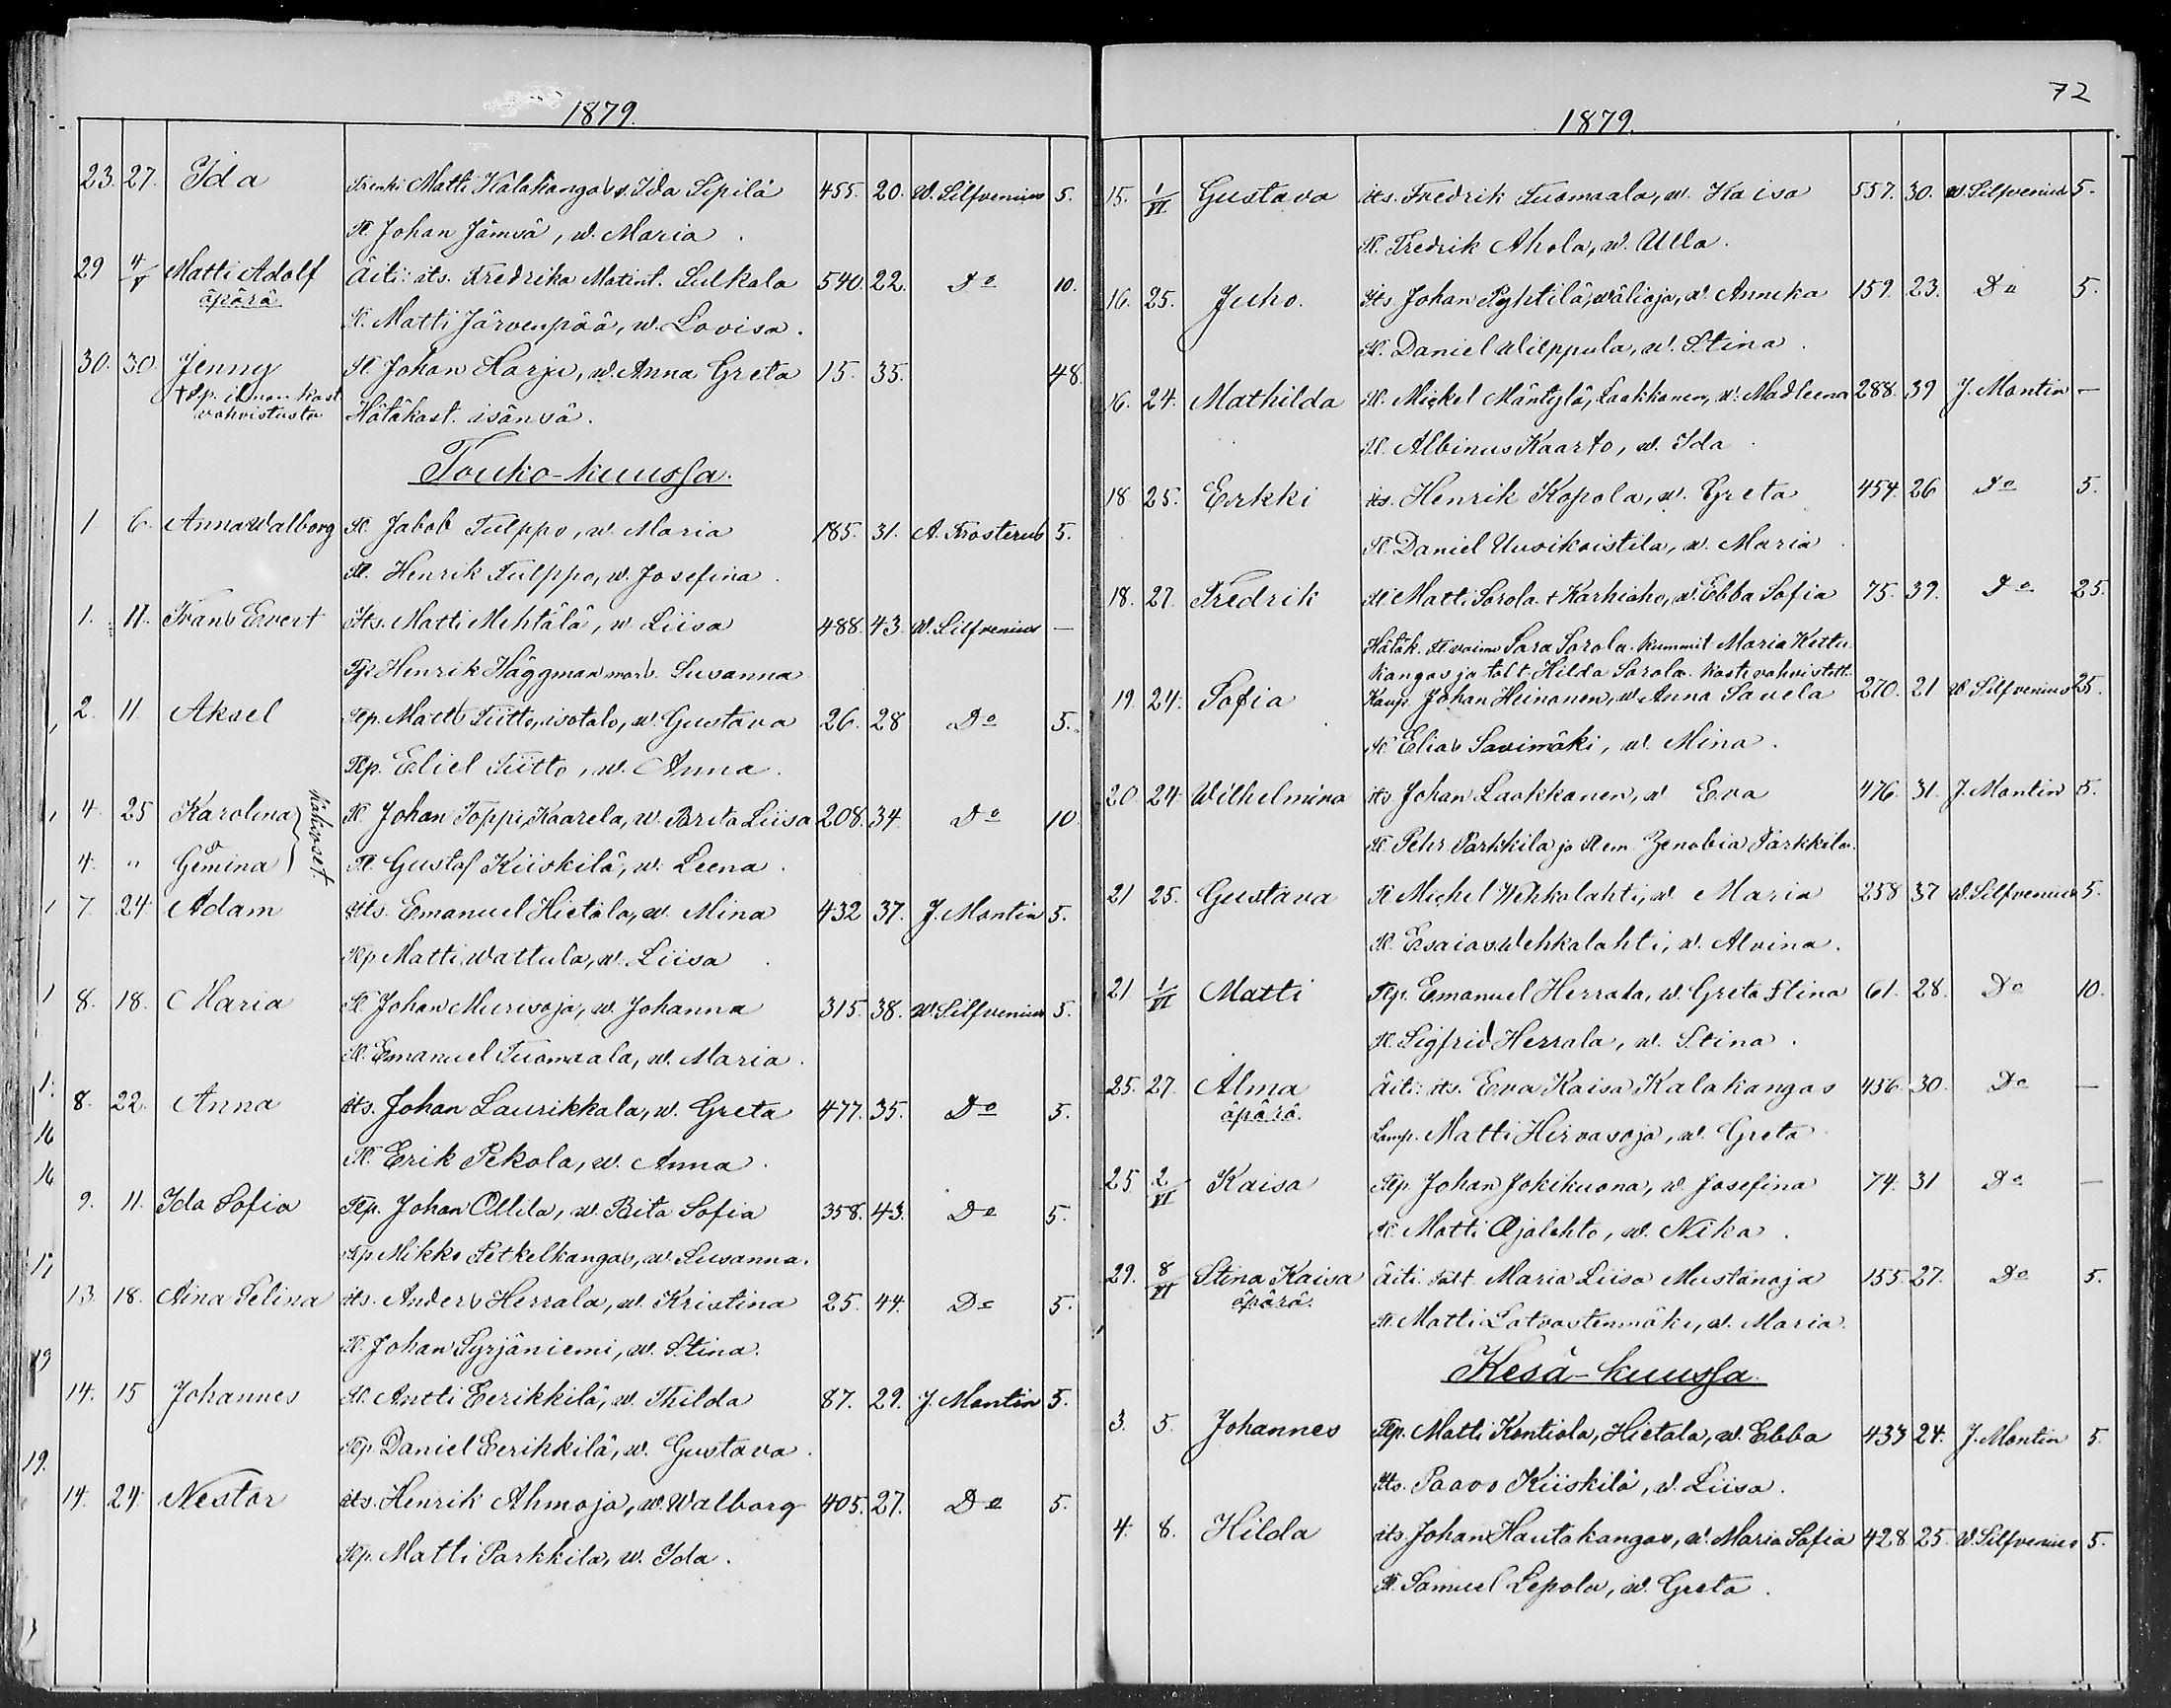 1879.
23. 27. Ida Trenki Matti Kalakangas v. Ida Sipilä 455. 20. W. Silfvenius 5.
Tl. Johan Jämsä, w. Maria.
29 4/V Matti Adolf Äiti: its. Fredrika Matint. Sulkala 540. 22. Do 10.
äpärä
Tl. Matti Järvenpää, w. Lovisa.
30. 30. Jenny Tl. Johan Harju, w. Anna Greta 15. 35. 48.
ilman kast
vahvistusta Hätäkast. isänsä.
Touko-kuussa.
1. 6. Anna Walborg Tl. Jakob Tulppo, w. Maria 185. 31. A. Frosterus 5.
Tl. Henrik Tulppo, w. Josefina.
1. 11. Frans Evert Its. Matti Mehtälä, w. Liisa 488. 43. W. Silfvenius —
Henrik Häggman Susanna
2. 11. Aksel Tlp. Matts Tiitto, isotalo, w. Gustava 26. 28 Do 5.
Tlp. Eliel Tiitto, w. Anna.
4. 25 Karolina Tl. Johan Toppi, Kaarela, w. Brita Liisa 208. 34. Do 10
Kaksoset.
4. " Gemina Tl. Gustaf Kiiskilä, w. Leena.
7. 24 Adam Its. Emanuel Hietala, w. Mina 432 37. J. Montin 5.
Tlp. Matti Wattula, w. Liisa.
8. 18. Maria Tl. Johan Murisoja, w. Johanna 315. 38. W. Silfvenius 5.
Tl. Emanuel Tuomaala, w. Maria.
8. 22. Anna its. Johan Laurikkala, w. Greta 477. 35. Do 5.
Tl. Erik Pekola, w. Anna.
9. 11. Ida Sofia Tlp. Johan Ollila, w. Brita Sofia 358. 43. Do 5.
Tlp Mikko Petkelkangas, w. Susanna.
13. 18. Aina Selina its. Anders Herrala, w. Kristina 25. 44. Do 5.
Tl. Johan Syrjäniemi, w. Stina.
14. 15 Johannes Tl. Antti Eerikkilä, w. Thilda 87. 29. J. Montin 5.
Tlp. Daniel Eerikkilä, w. Gustava.
14. 24. Nestor its. Henrik Ahmaoja, w. Walborg 405. 27. Do 5.
Tlp. Matti Parkkila, w. Ida.
72
1879.
15. 1/VI Gustava its. Fredrik Tuomaala, w. Kaisa 557. 30. W. Silfvenius 5.
Tl. Fredrik Ahola, w. Ulla.
16. 25. Juho. Its. Johan Pyhtilä, wälioja, w. Annika 159. 23. Do 5.
Tl. Daniel Wilppula, w. Stina.
16. 24. Mathilda Tl. Mickel Mäntylä, Laakkonen, w. Madleena 288. 39 J. Montin —
Tl. Albinus Kaarto, w. Ida.
18 25. Erkki its. Henrik Kopola, w. Greta 454. 26 Do 5.
Tl. Daniel Uusikoistila, w. Maria.
18. 27. Fredrik Tl. Matti Sorola t. Karhiaho, w. Ebba Sofia 75. 39. Do 25.
Hätäk. Tl. vaimo Sara Sorola. Kummit Maria Kettu-
kangas ja talt. Hilda Sorola. Kaste vahvistett.
19. 24. Sofia Kaup. Johan Heinonen, w. Anna Sauela 270. 21 W. Silfvenius 25.
Tl. Elias Savimäki, w. Mina.
20. 24. Wilhelmina its Johan Laakkonen, w. Eva 476. 31. J. Montin 5.
Tl. Pehr Parkkila ja Zenobia Parkkila.
21 25. Gustava Tl. Michel Wehkalahti, w. Maria 258 37 W. Silfvenius 5.
Tl. Esaias Wehkalahti, w. Alvina.
21 1/VI Matti Tlp. Emanuel Herrala, w. Greta Stina 61. 28. Do 10.
Tl. Sigfrid Herrala, w. Stina.
25. 27. Alma Äiti: its. Eva Kaisa Kalakangas 456. 30. Do —
äpärä.
Lamp. Matti Hirvasoja, w. Greta
25. 2/VI Kaisa Tlp. Johan Jokikuona, w. Josefina 74. 31 Do —
Tl. Matti Ojalehto, w. Nika.
29. 8/VI Stina Kaisa Äiti. talt Maria Liisa Mustanoja 155. 27. Do 5.
äpärä.
Tl. Matti Latvastenmäki, w. Maria.
Kesä-kuussa.
3. 5. Johannes Tlp. Matti Kontiola, Hietala, w. Ebba 433 24. J. Montin 5.
its. Paavo Kiiskilä, w. Liisa.
4. 8. Hilda its Johan Hautakangas, w. Maria Sofia 428. 25. W. Silfvenius 5.
Tl. Samuel Lepola, w. Greta.